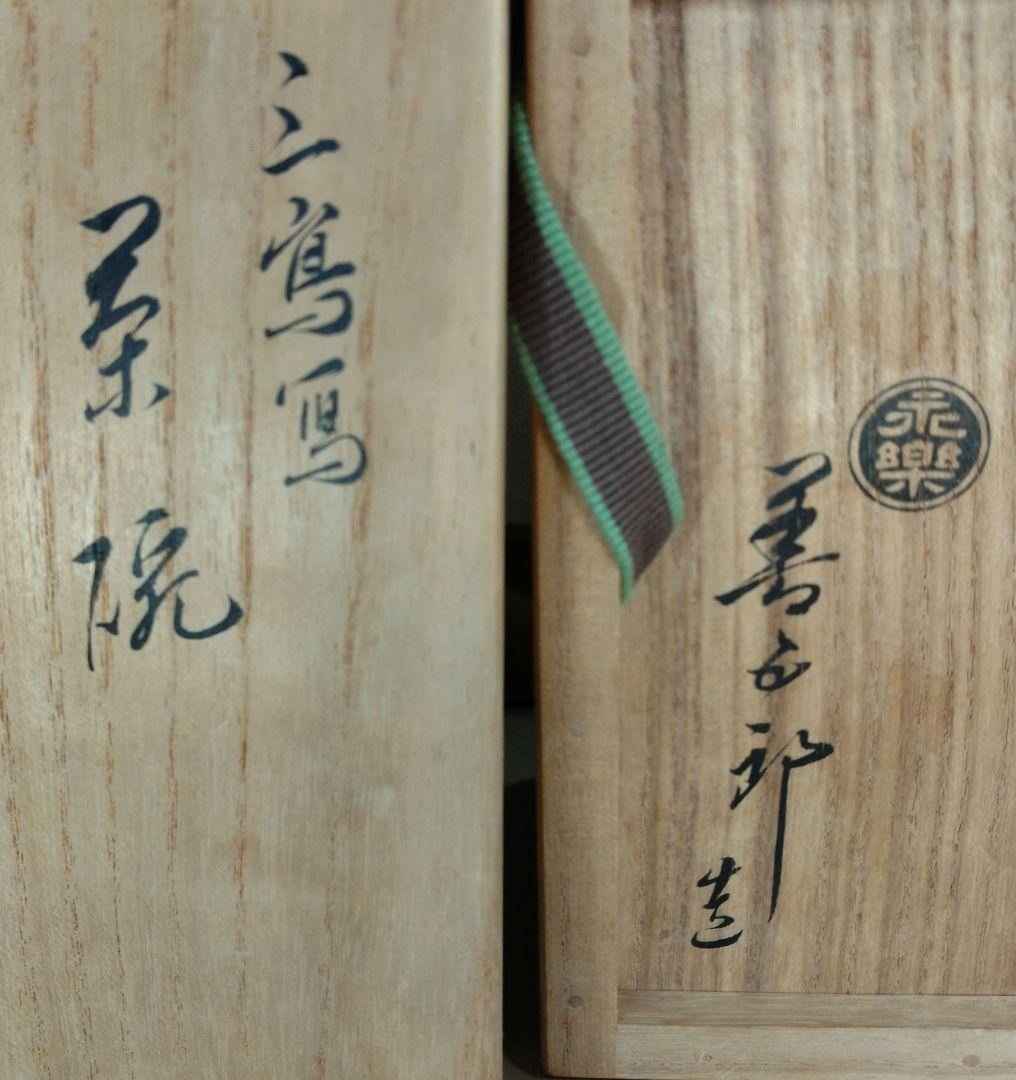 三嶌冩
茶碗
永樂
善五郎造